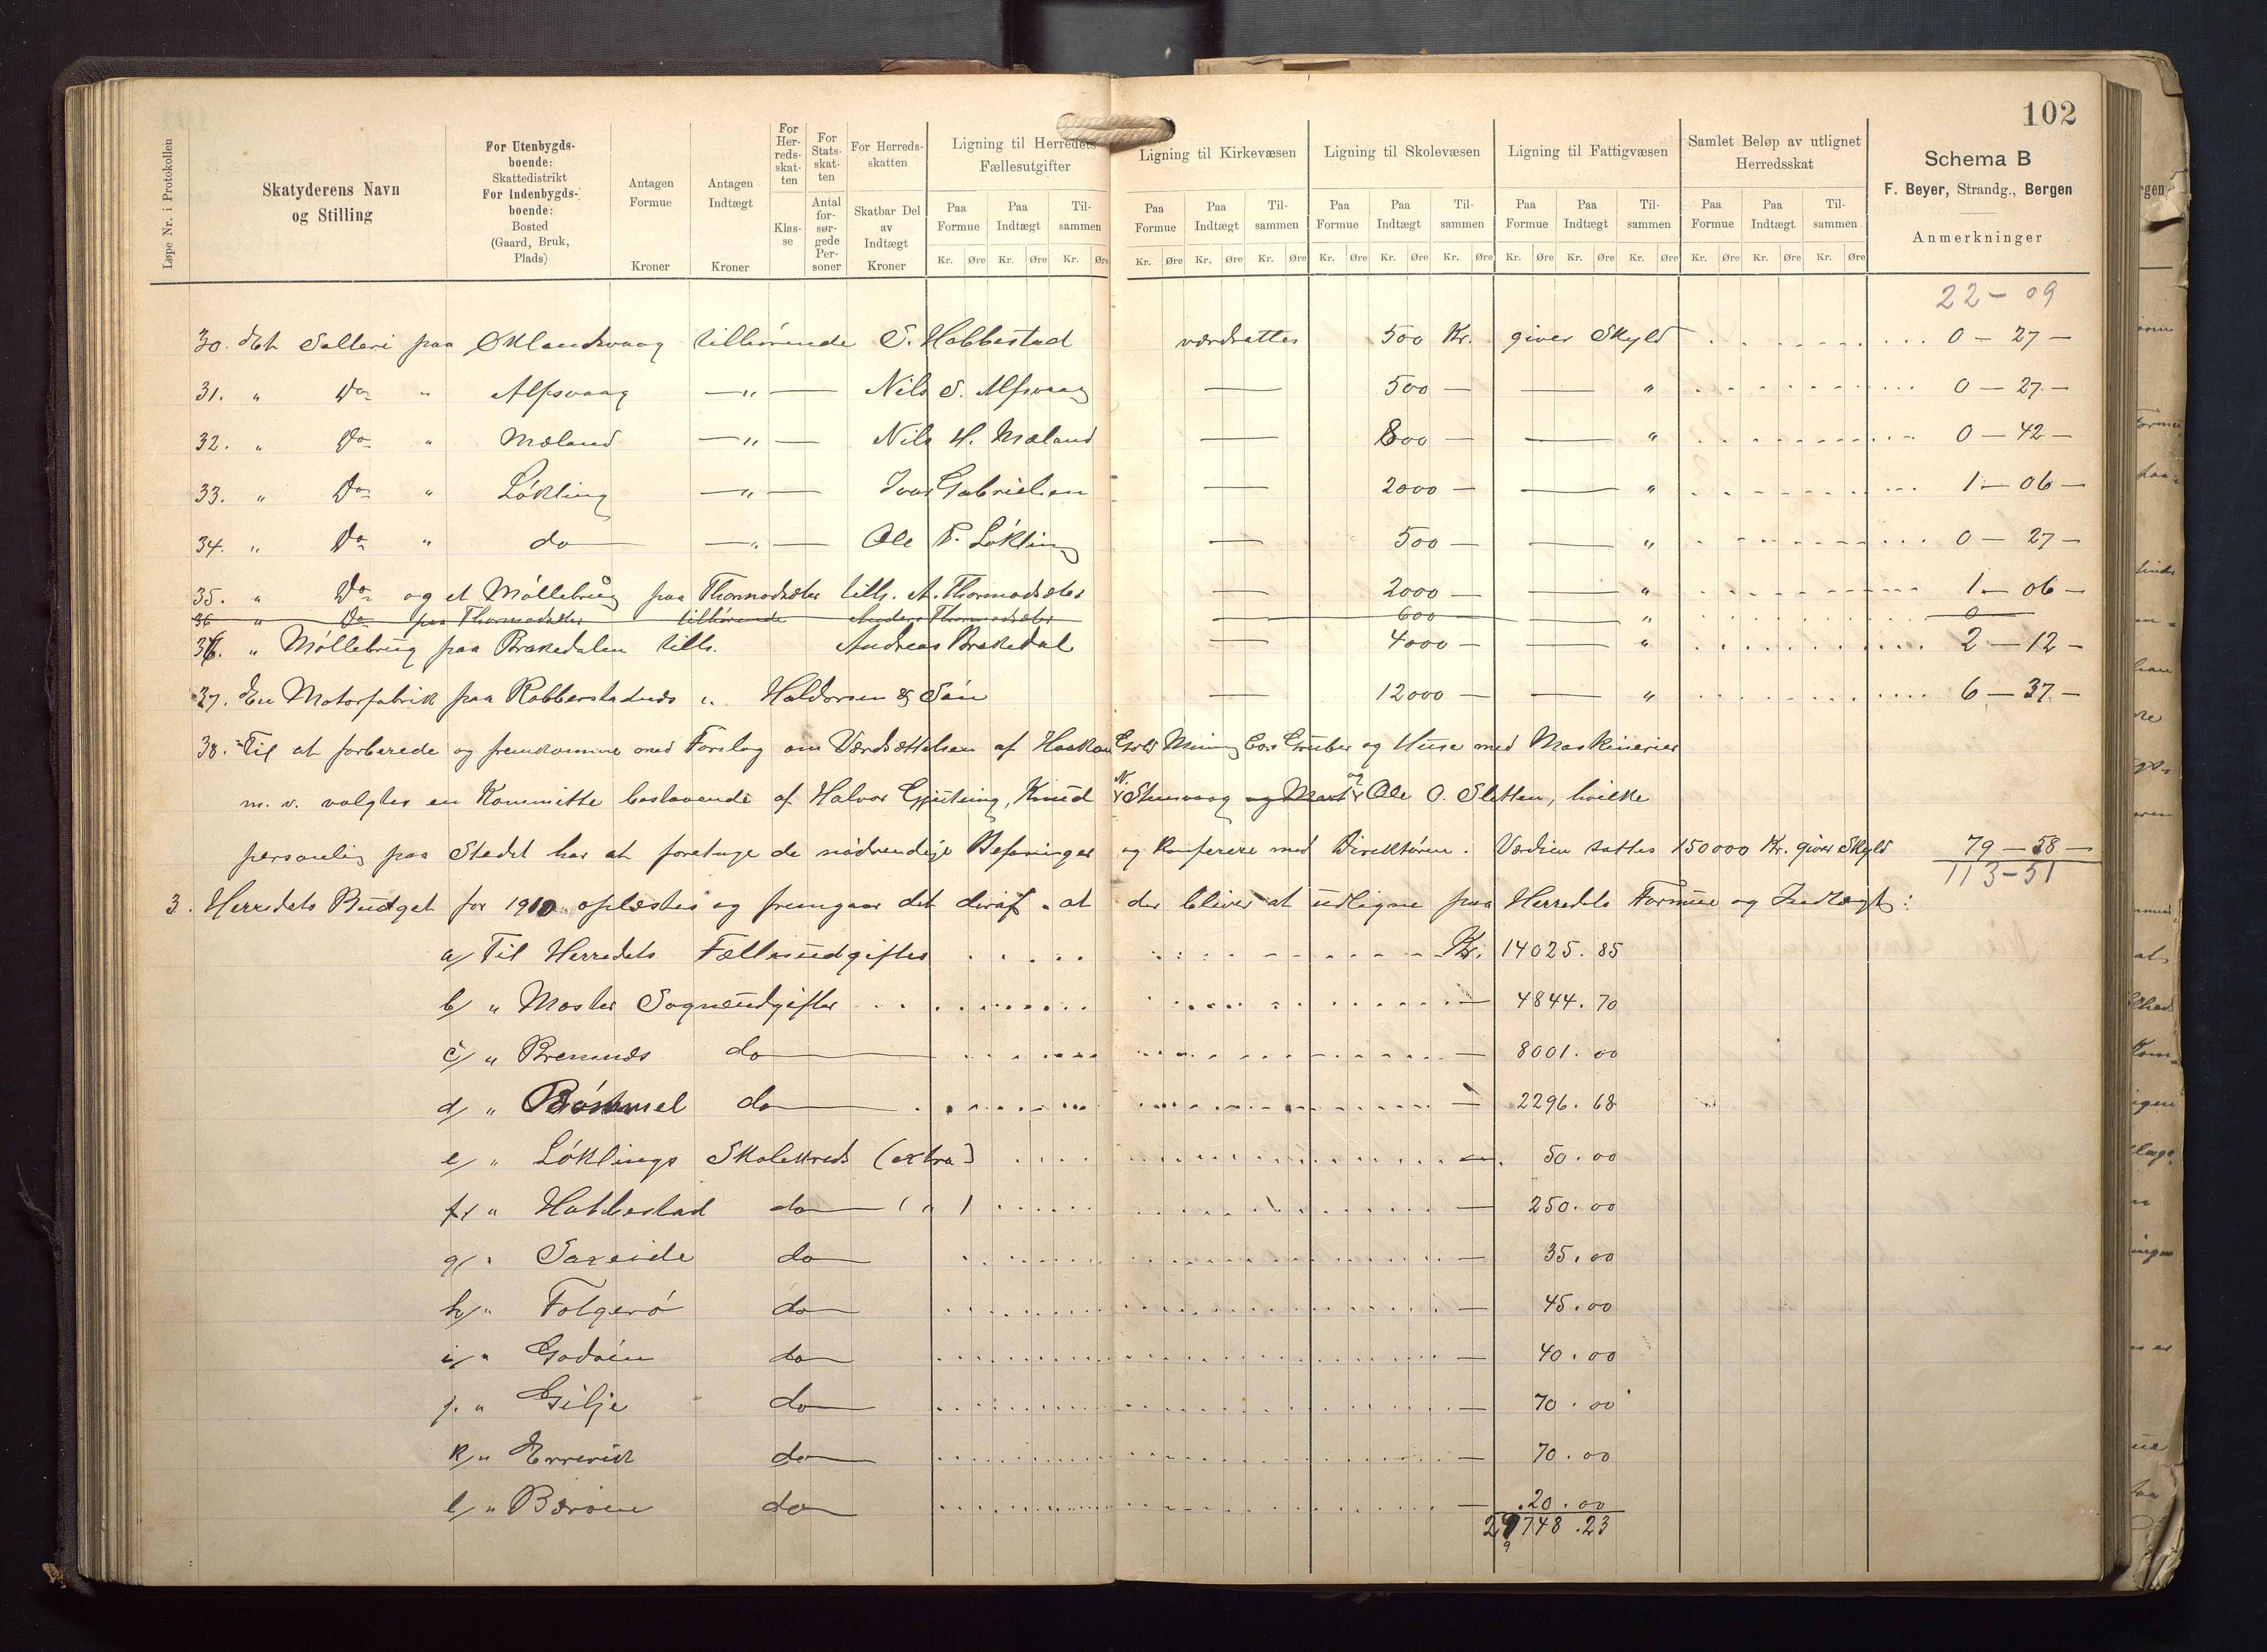 102
Løpe Nr. i Protokollen
Skatyderens Navn og Stilling
For Utenbygdsboende: Skattedistrikt For Indenbygdsboende: Bosted (Gaard, Bruk, Plads)
Antagen Formue Kroner
Antagen Indtægt Kroner
For Herredsskatten Klasse
For Statsskatten Antal forsørgede Personer
For Herredsskatten Skatbar Del av Indtægt Kroner
Ligning til Herredets Fællesutgifter
Paa Formue Paa Indtægt Tilsammen
Kr. Øre Kr. Øre Kr. Øre
Ligning til Kirkevæsen
Paa Formue Paa Indtægt Tilsammen
Kr. Øre Kr. Øre Kr. Øre
Ligning til Skolevæsen
Paa Formue Paa Indtægt Tilsammen
Kr. Øre Kr. Øre Kr. Øre
Ligning til Fattigvæsen
Paa Formue Paa Indtægt Tilsammen
Kr. Øre Kr. Øre Kr. Øre
Samlet Beløp av utlignet Herredsskat
Paa Formue Paa Indtægt Tilsammen
Kr. Øre Kr. Øre Kr. Øre
Schema B
F. Beyer, Strandg., Bergen
Anmerkninger
22 – 09
30. det Salteri paa Øklandsvaag tilhørende S. Habbestad værdsattes 500 Kr. giver Skyld 0 – 27 –
31. " Do " Alfsvaag — " — Nils S. Alfsvaag — 500 — — " 0 – 27 –
32. " Do " Mæland — " — Nils H. Mæland — 800 — — " 0 – 42 –
33. " Do " Løkling — " — Ivar Gabrielsen — 2000 — — " 1 – 06 –
34. " Do " do — " — Ole P. Løkling — 500 — — " 0 – 27 –
35. " Do og et Møllebrug paa Thormodsæter tilh. A. Thormodsæter — 2000 — — " 1 – 06 –
36 " Do paa Thormodsæter tilhørende Anders Thormodsæter — 600 — — " 0
36. " Møllebrug paa Brækedalen tilh. Andreas Brekedal — 4000 — — " 2 – 12 –
37. En Motorfabrik paa Robberstadnes " Haldorsen & Søn — 12000 — — " 6 – 37 –
38. Til at forberede og fremkomme med Forslag om Værdsættelsen af Haakon Gold Mining Cos Gruber og Huse med Maskinerier
m. v. valgtes en Kommitte bestaaende af Halvor Gjuteing, Knud N. Stensvaag og Mart og Ole O. Sletten, hvilke
personlig paa Stedet har at foretage de nødvendige Befaringer og konferere med Direktøren. Værdien sattes 150000 Kr. giver Skyld 79 – 58 –
113 – 51
3. Herredets Budget for 1910 oplæstes og fremgaar det deraf at der bliver at udligne paa Herredets Formue og Indtægt:
a/ Til Herredets Fællesudgifter Kr. 14025.85
b/ " Moster Sogneudgifter — 4844.70
c/ " Bremnes do — 8001.00
d/ " Bømmel do — 2296.68
e/ " Løklings Skolekreds (extra) — 50.00
f/ " Habbestad do ( " ) — 250.00
g/ " Sareide do — 35.00
h/ " Folgerø do — 45.00
i/ " Godøen do — 40.00
j. " Gilje do — 70.00
k/ " Ervevik do — 70.00
l/ " Bærøen do — 20.00
29748.23